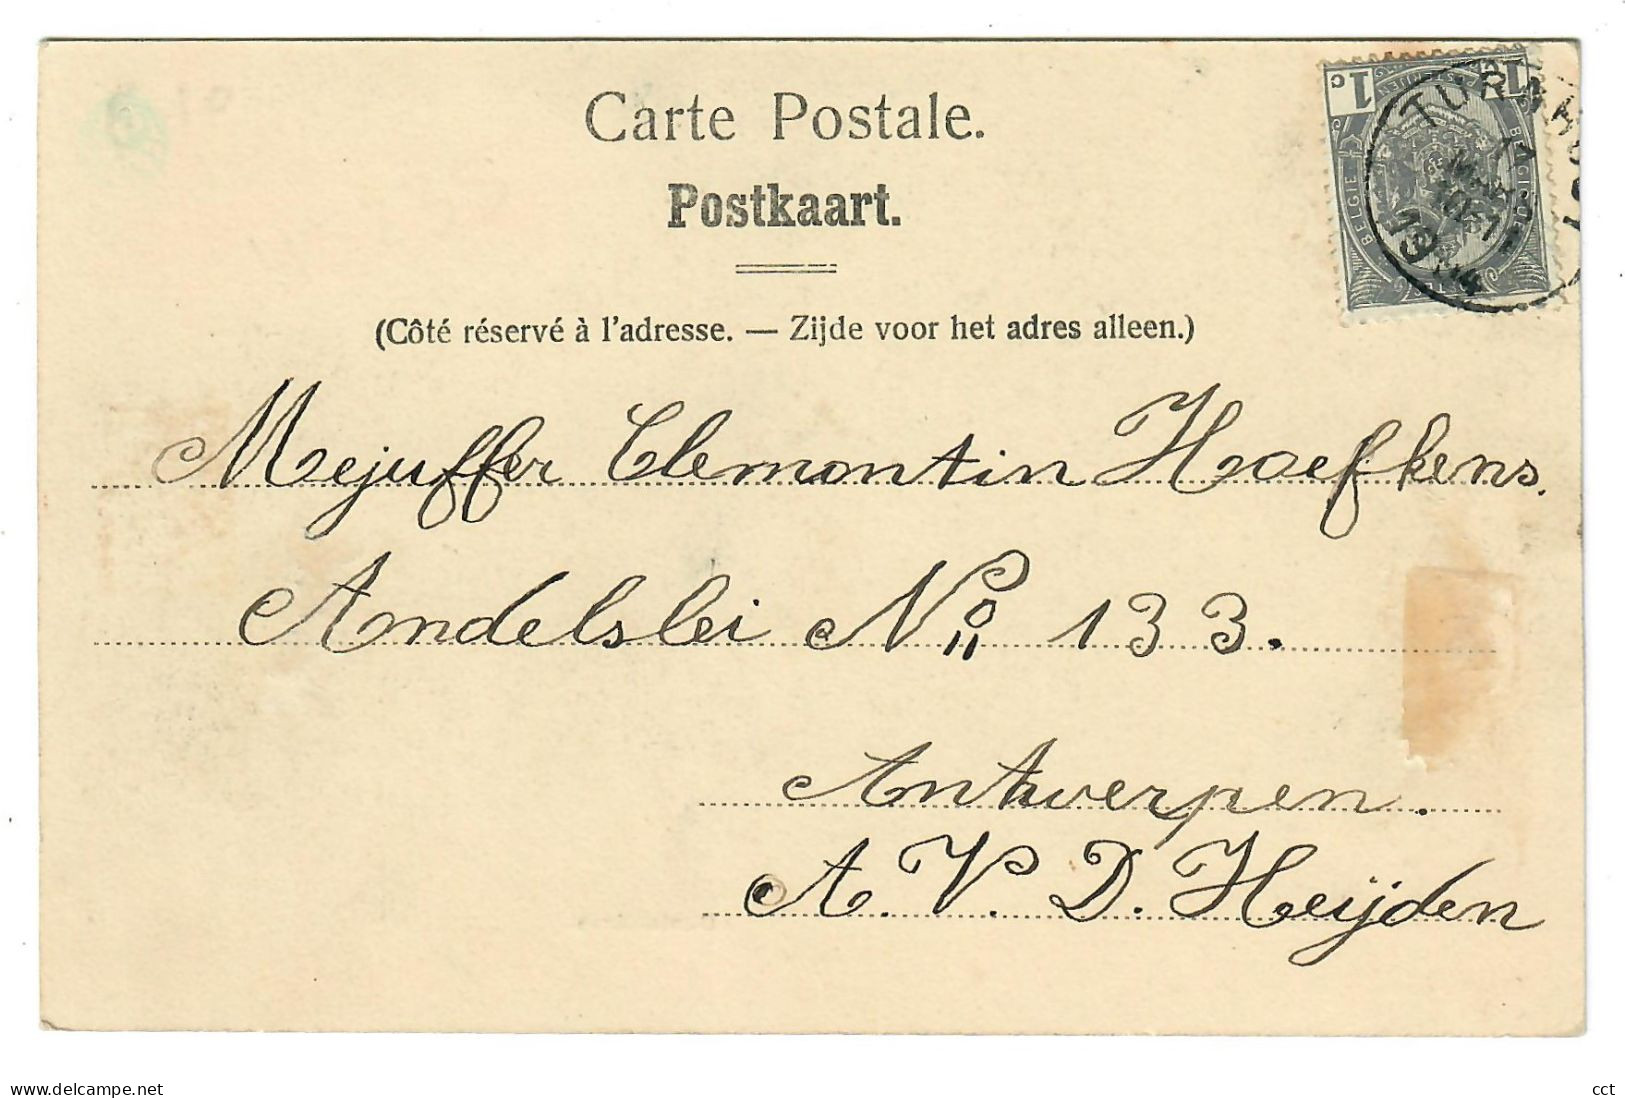 Carte Postale.
Postkaart.
(Côté réservé à l'adresse. — Zijde voor het adres alleen.)
1c 1
BELGIE BELGIQUE
TURNHOUT
MAR
19
Mejuffer Clemontin Hoefkens.
Andelslei No 133.
Antwerpen.
A. V. D. Heÿden
www.delcampe.net
cct